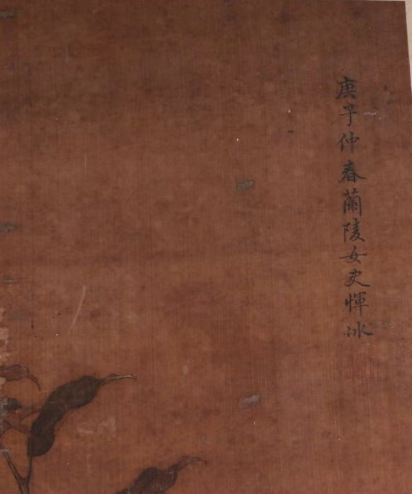 庚子仲春蘭陵女史惲冰